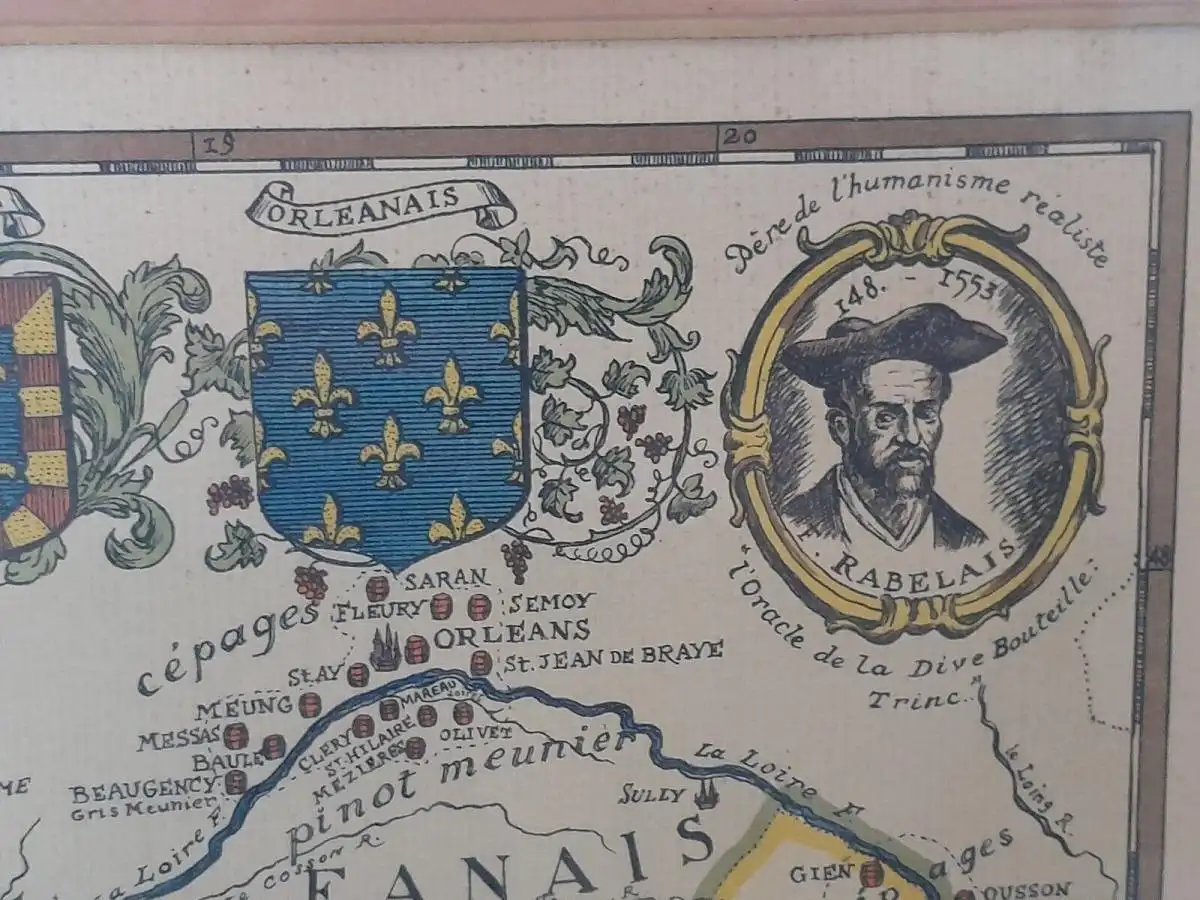 19
20
ORLEANAIS
Père de l'humanisme réaliste
148. - 1553
F. RABELAIS
"l'Oracle de la Dive Bouteille:
Trinc."
48
SARAN
FLEURY
SEMOY
cépages
ORLEANS
St. JEAN DE BRAYE
St. AY
MEUNG
MAREAU
MESSAS
CLERY
ST. HILAIRE
OLIVET
BAULE
MEZIERES
BEAUGENCY
Gris Meunier
pinot meunier
La Loire F.
SULLY
le Loing R.
ME
La Loire F.
Cosson R.
EANAIS
GIEN
ages
OUSSON
R.